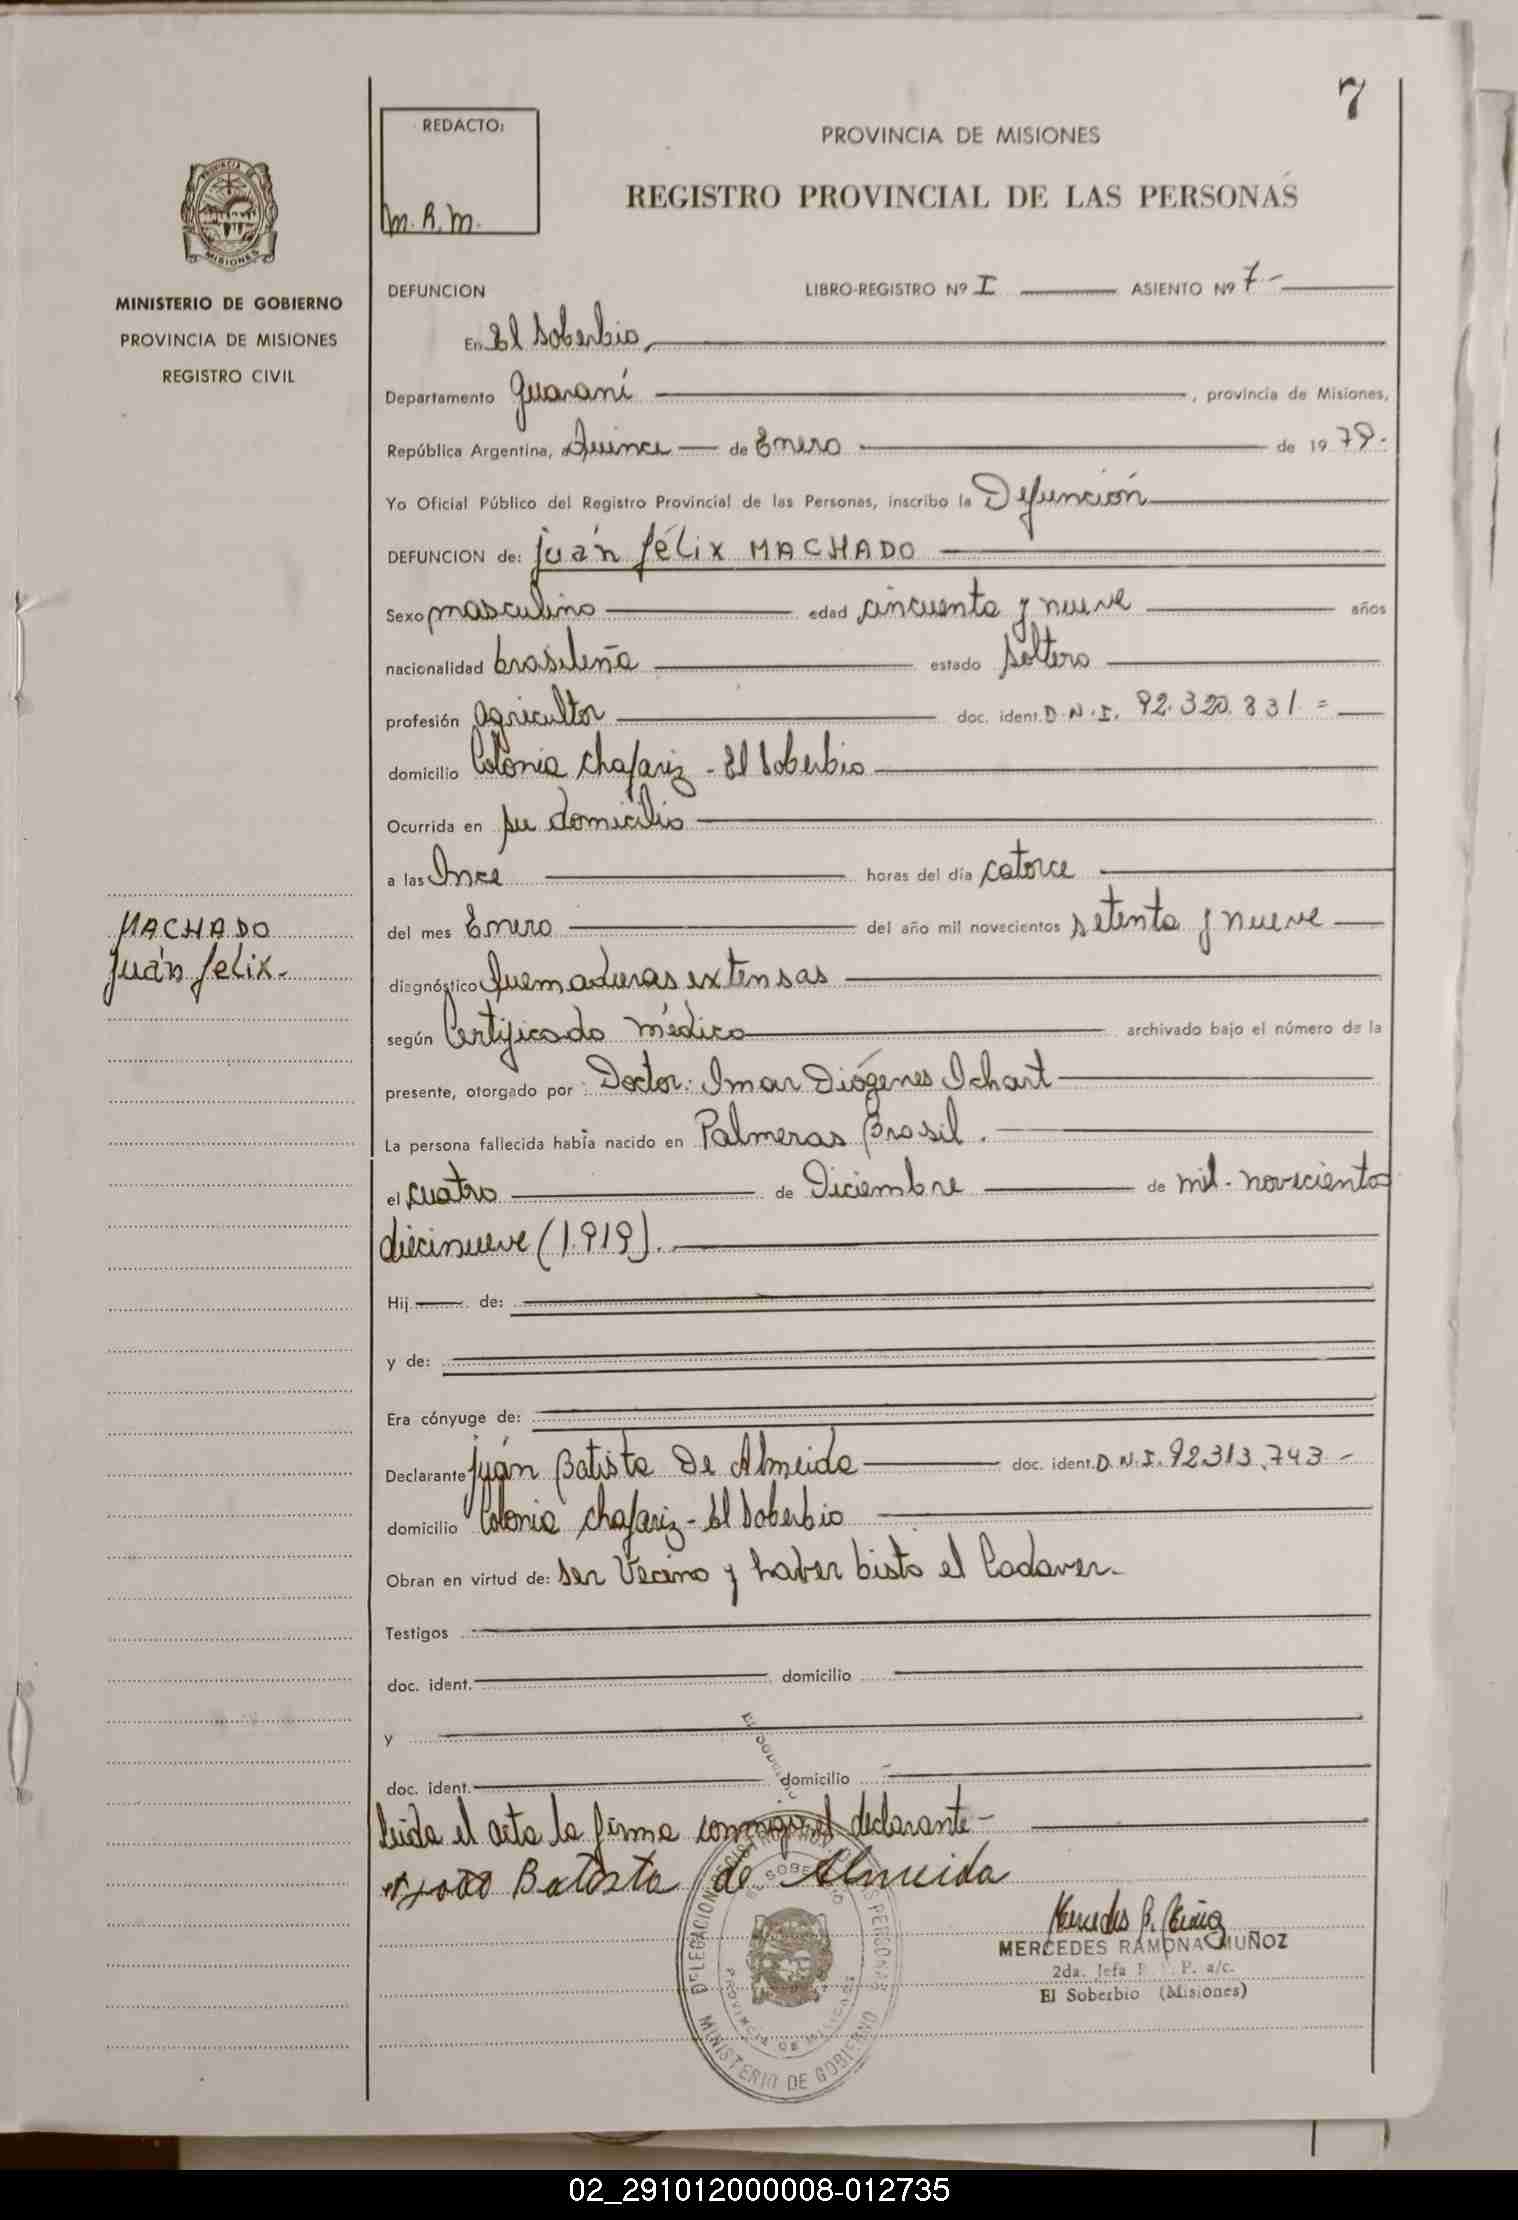 7
REDACTO:
M. R. M.
PROVINCIA DE MISIONES
REGISTRO PROVINCIAL DE LAS PERSONAS
PROVINCIA DE
MISIONES
MINISTERIO DE GOBIERNO
PROVINCIA DE MISIONES
REGISTRO CIVIL
DEFUNCION LIBRO-REGISTRO Nº I ASIENTO Nº 7-
En El Soberbio,
Departamento Guaraní , provincia de Misiones,
República Argentina, a Quince de Enero de 19 79.
Yo Oficial Público del Registro Provincial de las Personas, inscribo la Defunción
DEFUNCION de: Juán Félix MACHADO
Sexo masculino edad cincuenta y nueve años
nacionalidad brasileña estado soltero
profesión Agricultor doc. ident. D.N.I. 92.320.831. =
domicilio Colonia Chafariz - El Soberbio
Ocurrida en su domicilio
a las Once horas del día catorce
del mes Enero del año mil novecientos setenta y nueve
MACHADO
Juán Felix-
diagnóstico Quemaduras extensas
según Certificado médico archivado bajo el número de la
presente, otorgado por : Doctor: Imar Diógenes Ichart
La persona fallecida había nacido en Palmeras Brasil.
el cuatro de Diciembre de mil novecientos
diecinueve (1.919).
Hij de:
y de:
Era cónyuge de:
Declarante Juán Batista De Almeida doc. ident. D.N.I. 92.313.743-
domicilio Colonia Chafariz - El Soberbio
Obran en virtud de: ser Vecino y haber bisto el Cadaver-
Testigos
doc. ident. domicilio
y
doc. ident. domicilio
leida el acta la firma conmigo el declarante-
Batista de Almeida
MERCEDES RAMONA MUÑOZ
2da. Jefa R. P. P. a/c.
El Soberbio (Misiones)
DELEGACION REGISTRO PROV. DE LAS PERSONAS
EL SOBERBIO
PROVINCIA DE MISIONES
MINISTERIO DE GOBIERNO
02_291012000008-012735